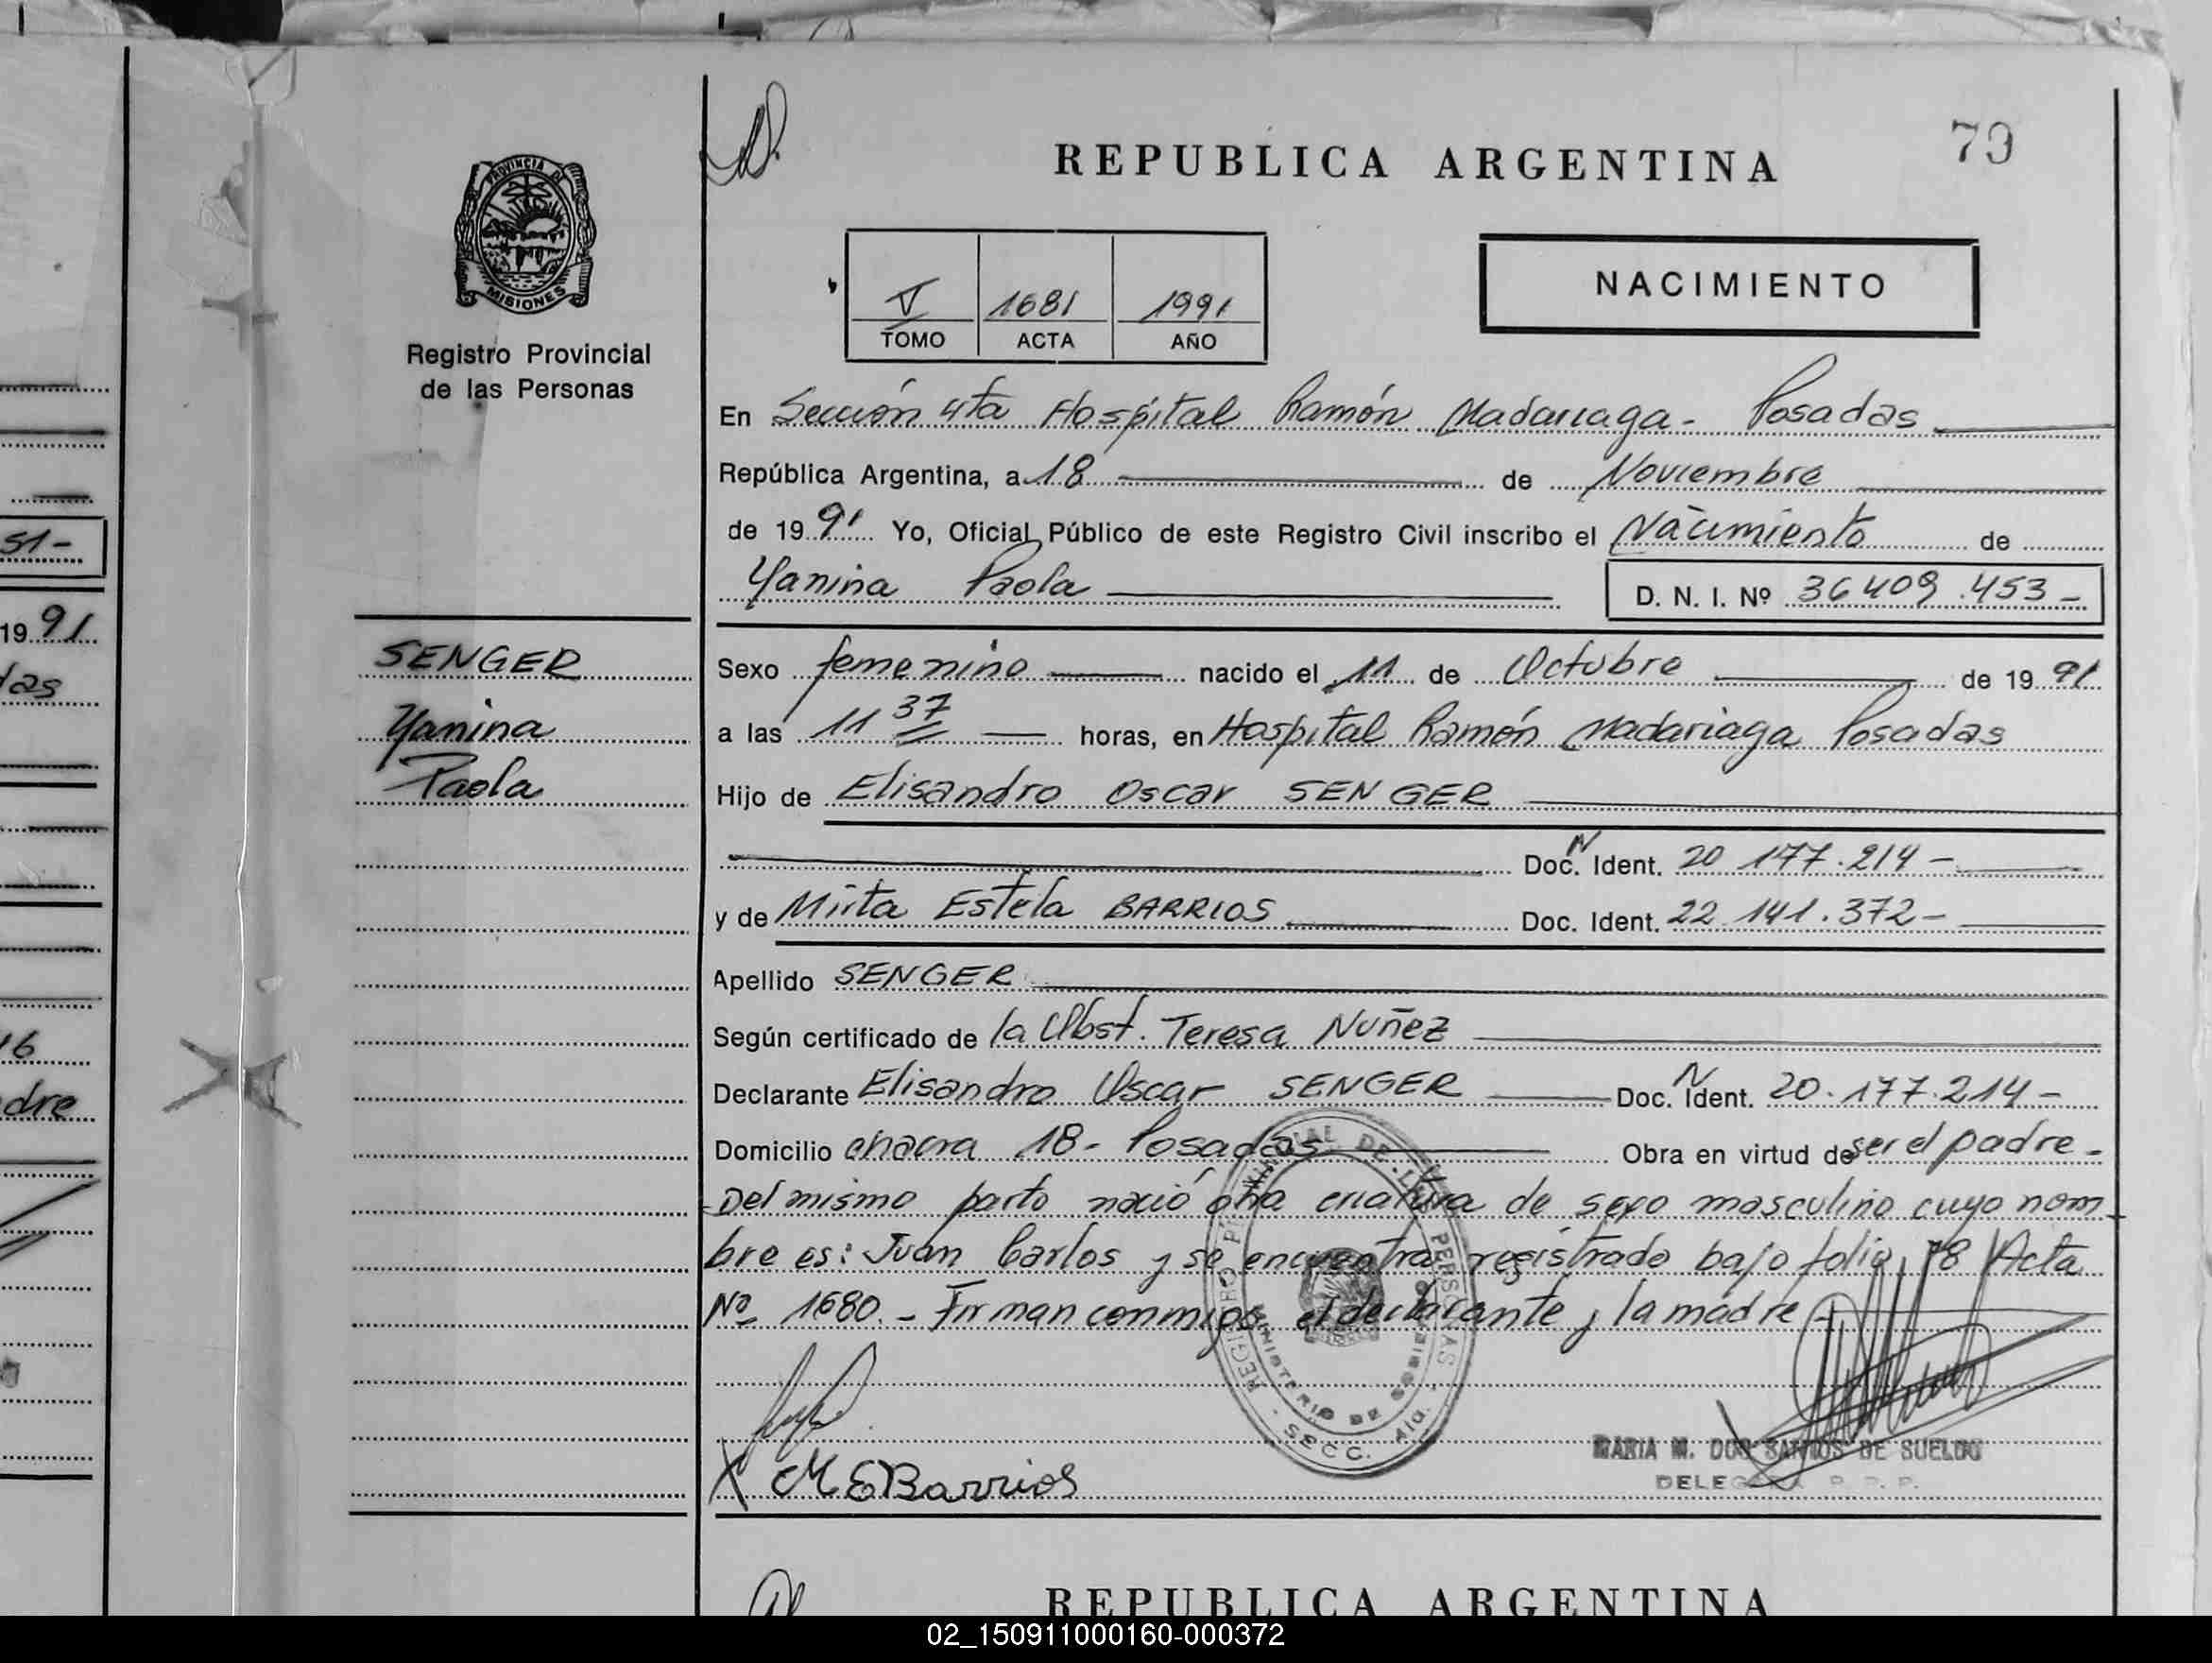 79
REPUBLICA ARGENTINA
PROVINCIA D
MISIONES
Registro Provincial
de las Personas
V 1681 1991
TOMO ACTA AÑO
NACIMIENTO
En Sección 4ta Hospital Ramón Madariaga - Posadas
República Argentina, a 18 de Noviembre
de 1991 Yo, Oficial Público de este Registro Civil inscribo el Nacimiento de
Yanina Paola D. N. I. Nº 36409.453-
SENGER
Yanina
Paola
Sexo femenino nacido el 11 de Octubre de 1991
a las 11 37 horas, en Hospital Ramón Madariaga Posadas
Hijo de Elisandro Oscar SENGER
Doc. N Ident. 20 177.214-
y de Mirta Estela BARRIOS Doc. Ident. 22 141.372-
Apellido SENGER
Según certificado de la Obst. Teresa Nuñez
Declarante Elisandro Oscar SENGER Doc. N Ident. 20.177.214-
Domicilio chacra 18- Posadas Obra en virtud de ser el padre-
Del mismo parto nació otra criatura de sexo masculino cuyo nom
bre es: Juan Carlos y se encuentra registrado bajo folio 78 Acta
Nº 1680.- Firman conmigo el declarante y la madre-
MINISTERIO DE GOBIERNO
SECC. 4ta.
MARIA M. DOS SANTOS DE SUELDO
X MEBarrios
REPUBLICA ARGENTINA
51-
1991
das
16
dre
02_150911000160-000372